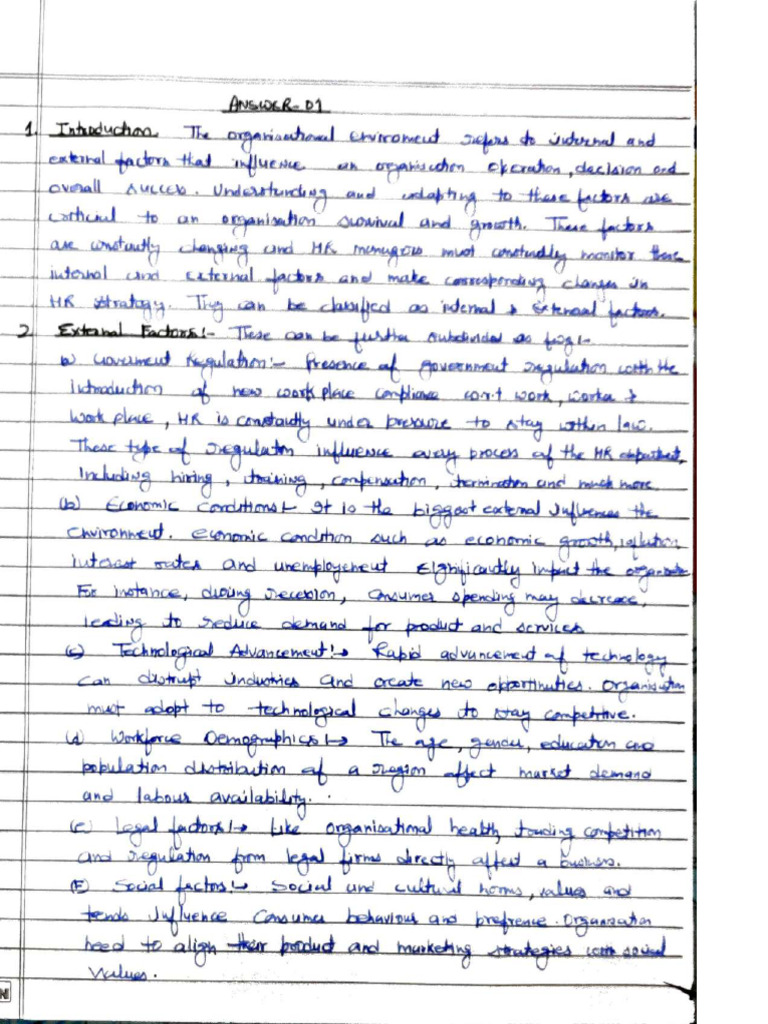 ANSWER-01
1. Introduction. The organisational enviroment refers to internal and
external factors that influence an organisation operation, decision and
overall success. Understanding and adapting to these factors are
to an organisation survival and growth. These factors
are constantly changing and HR managers must constantly monitor these
internal and external factors and make corresponding changes in
HR strategy. They can be classified as internal & external factors.
2. External Factors:- These can be further subdivided as :-
a) Goverment Regulation:- Presence of government regulation with the
introduction of new work place compliance w.r.t work, worker &
work place, HR is constantly under pressure to stay within law.
These type of regulation influence every process of the HR department,
including hiring, training, compensation, termination and much more.
(b) Economic conditions:- It is the biggest external influences the
environment. Economic condition such as economic growth, inflation
interest rates and unemployement significantly impact the
For instance, during recession, consumer spending may decrease,
leading to reduce demand for product and services
(c) Technological Advancement:→ Rapid advancement of technology
can distrupt industries and create new opportinuties. Organisation
must adopt to technological changes to stay competitive.
(d) Workforce Demographics:→ The age, gender, education and
population distribution of a region affect market demand
and labour availability.
(e) Legal factors:→ Like organisational health, trading competition
and regulation from legal firms directly affect a business.
(F) Social factors:- Social and cultural norms, values and
tends influence consumer behaviour and prefrence. Organisation
need to align their product and marketing strategies with social
values.
N